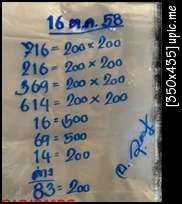 16 ต.ค. 58
916 = 200 x 200
216 = 200 x 200
369 = 200 x 200
614 = 200 x 200
16 = 500
69 = 500
14 = 200
ล่าง
83 = 200
[350x435] upic.me